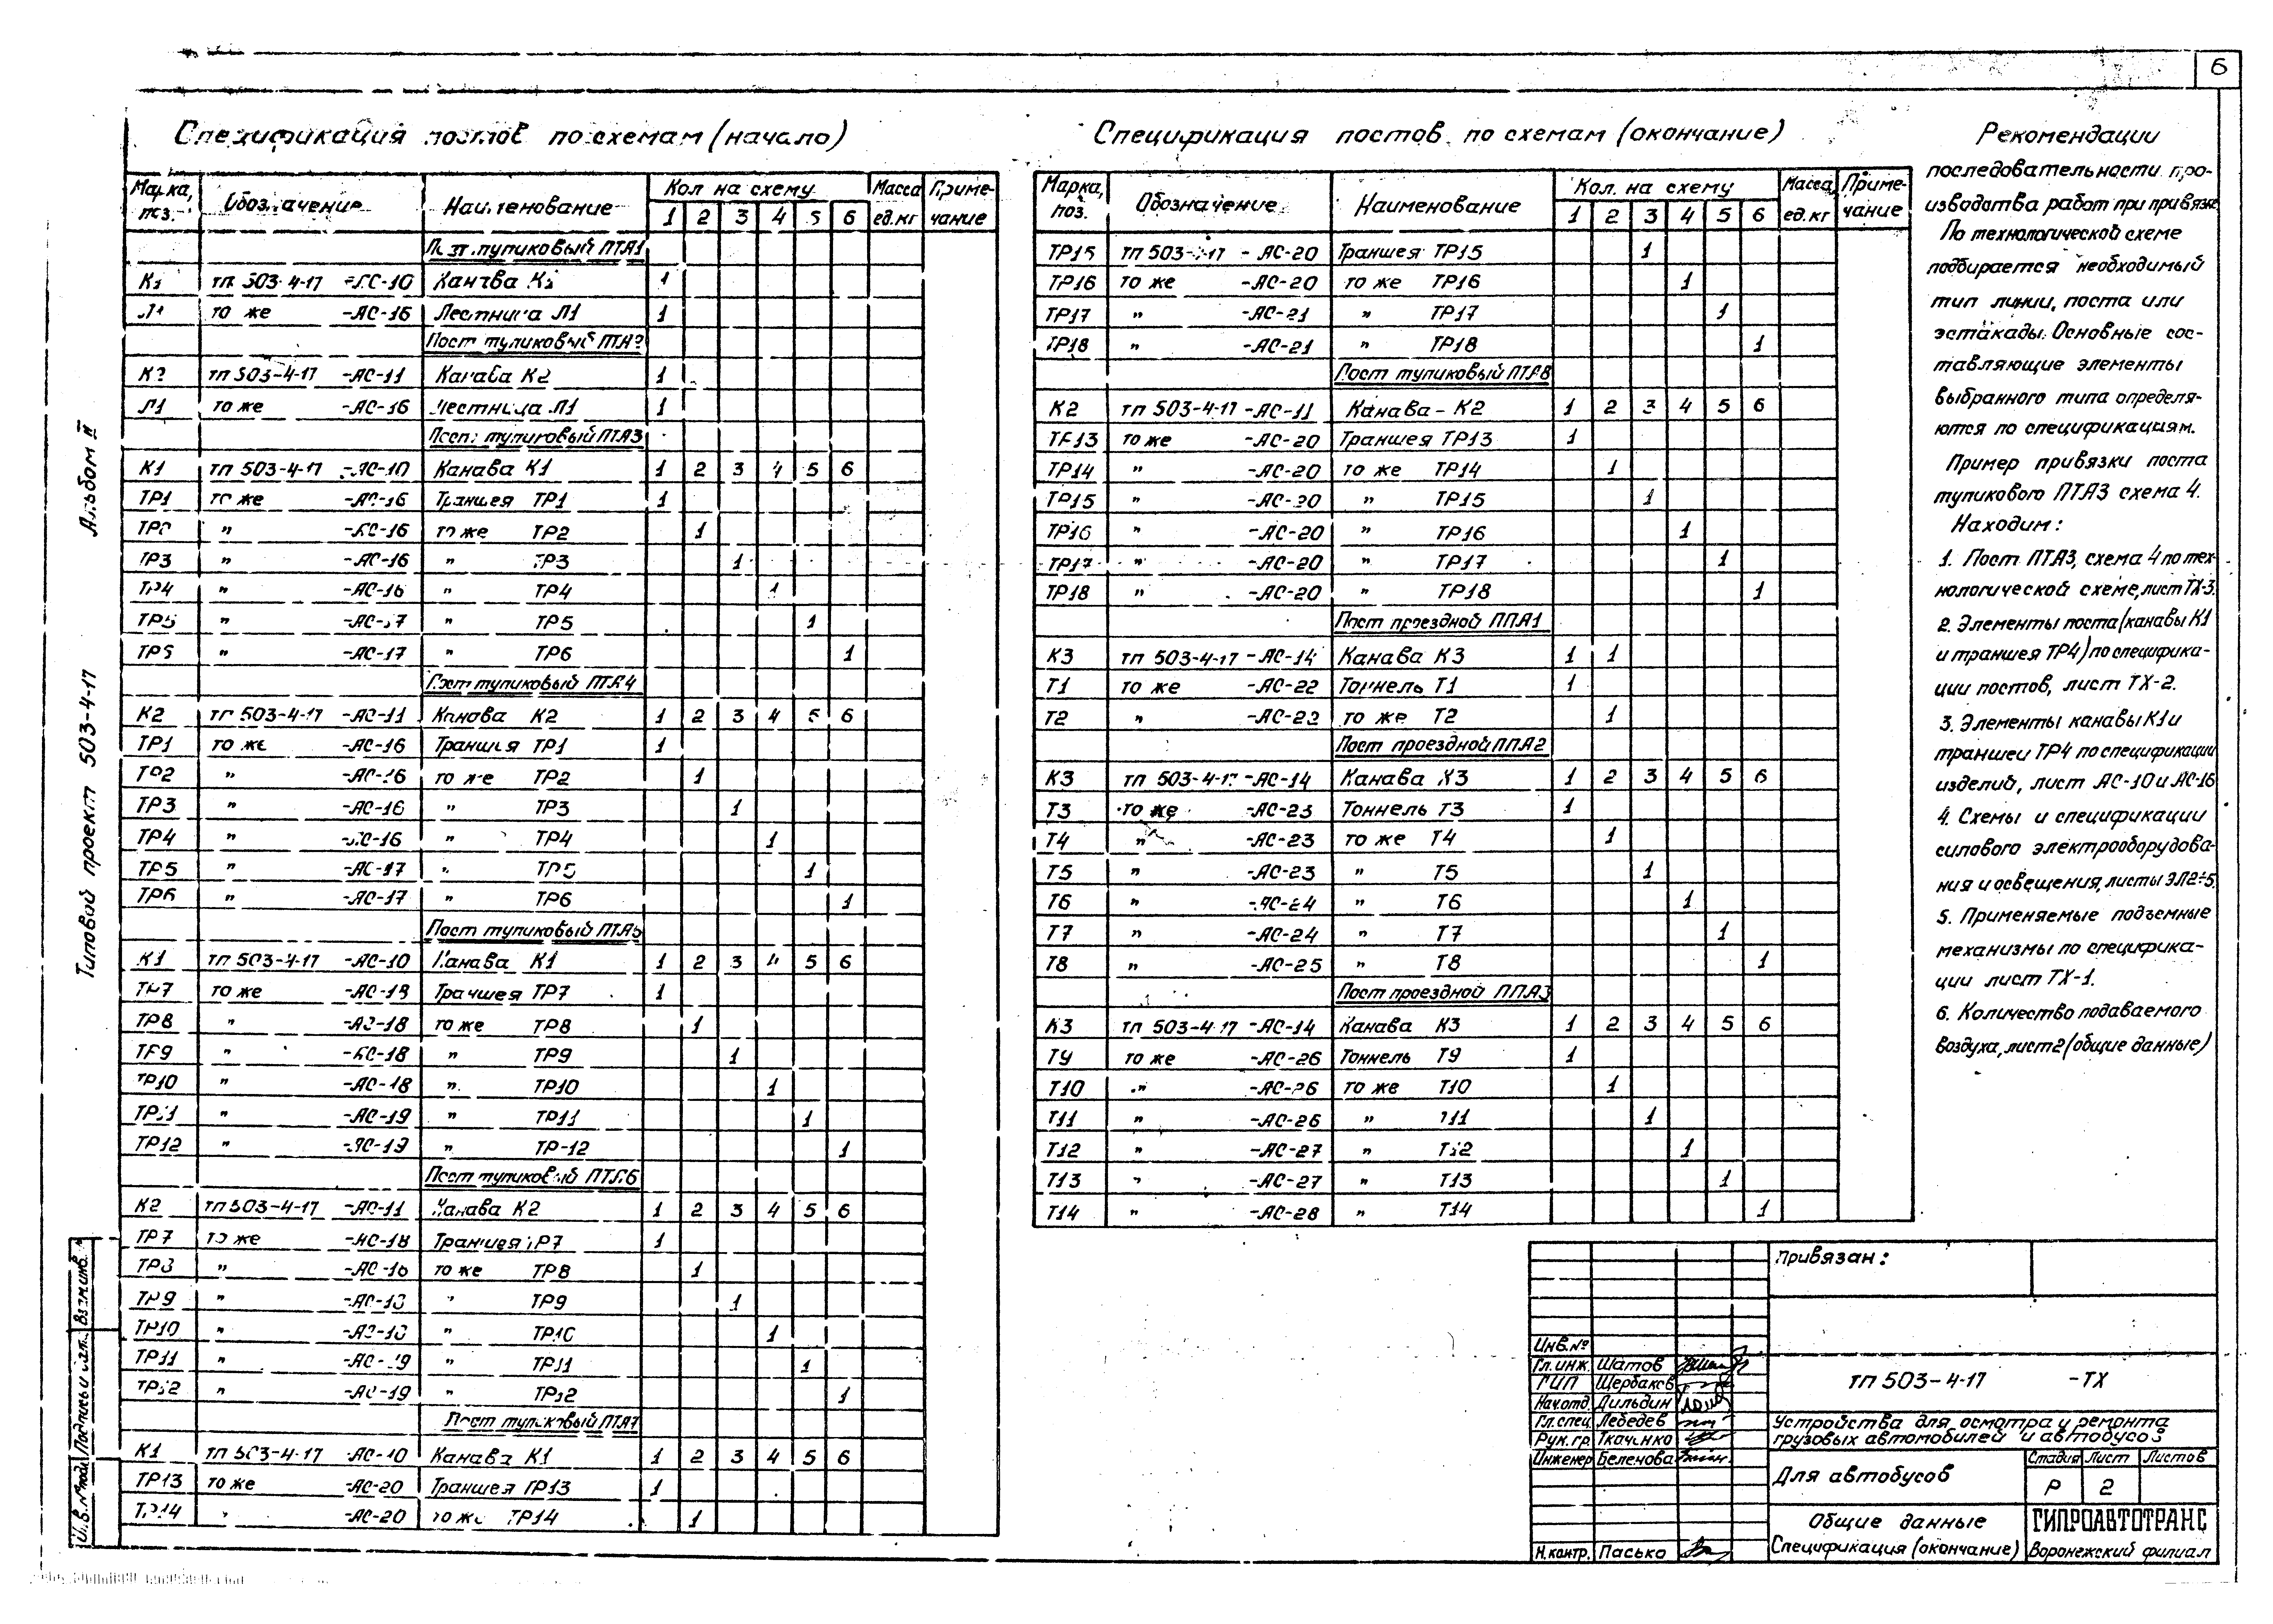 6
Спецификация постов по схемам (начало)
Марка, поз. Обозначение Наименование Кол на схему Масса ед.кг Приме-чание
1 2 3 4 5 6
Пост тупиковый ПТА1
К1 тп 503-4-17 -АС-10 Канава К1 1
Л1 то же -АС-16 Лестница Л1 1
Пост тупиковый ПТА2
К2 тп 503-4-17 -АС-11 Канава К2 1
Л1 то же -АС-16 Лестница Л1 1
Пост тупиковый ПТА3
К1 тп 503-4-17 -АС-10 Канава К1 1 2 3 4 5 6
ТР1 то же -АС-16 Траншея ТР1 1
ТР2 " -АС-16 то же ТР2 1
ТР3 " -АС-16 " ТР3 1
ТР4 " -АС-16 " ТР4 1
ТР5 " -АС-17 " ТР5 1
ТР6 " -АС-17 " ТР6 1
Пост тупиковый ПТА4
К2 тп 503-4-17 -АС-11 Канава К2 1 2 3 4 5 6
ТР1 то же -АС-16 Траншея ТР1 1
ТР2 " -АС-16 то же ТР2 1
ТР3 " -АС-16 " ТР3 1
ТР4 " -АС-16 " ТР4 1
ТР5 " -АС-17 " ТР5 1
ТР6 " -АС-17 " ТР6 1
Пост тупиковый ПТА5
К1 тп 503-4-17 -АС-10 Канава К1 1 2 3 4 5 6
ТР7 то же -АС-18 Траншея ТР7 1
ТР8 " -АС-18 то же ТР8 1
ТР9 " -АС-18 " ТР9 1
ТР10 " -АС-18 " ТР10 1
ТР11 " -АС-19 " ТР11 1
ТР12 " -АС-19 " ТР-12 1
Пост тупиковый ПТА6
К2 тп 503-4-17 -АС-11 Канава К2 1 2 3 4 5 6
ТР7 то же -АС-18 Траншея ТР7 1
ТР8 " -АС-18 то же ТР8 1
ТР9 " -АС-18 " ТР9 1
ТР10 " -АС-18 " ТР10 1
ТР11 " -АС-19 " ТР11 1
ТР12 " -АС-19 " ТР12 1
Пост тупиковый ПТА7
К1 тп 503-4-17 -АС-10 Канава К1 1 2 3 4 5 6
ТР13 то же -АС-20 Траншея ТР13 1
ТР14 " -АС-20 то же ТР14 1
Спецификация постов по схемам (окончание)
Марка, поз. Обозначение Наименование Кол. на схему Масса ед.кг Приме-чание
1 2 3 4 5 6
ТР15 тп 503-4-17 -АС-20 Траншея ТР15 1
ТР16 то же -АС-20 то же ТР16 1
ТР17 " -АС-21 " ТР17 1
ТР18 " -АС-21 " ТР18 1
Пост тупиковый ПТА8
К2 тп 503-4-17 -АС-11 Канава-К2 1 2 3 4 5 6
ТР13 то же -АС-20 Траншея ТР13 1
ТР14 " -АС-20 то же ТР14 1
ТР15 " -АС-20 " ТР15 1
ТР16 " -АС-20 " ТР16 1
ТР17 " -АС-20 " ТР17 1
ТР18 " -АС-20 " ТР18 1
Пост проездной ППА1
К3 тп 503-4-17 -АС-14 Канава К3 1 1
Т1 то же -АС-22 Тоннель Т1 1
Т2 " -АС-22 то же Т2 1
Пост проездной ППА2
К3 тп 503-4-17 -АС-14 Канава К3 1 2 3 4 5 6
Т3 то же -АС-23 Тоннель Т3 1
Т4 " -АС-23 то же Т4 1
Т5 " -АС-23 " Т5 1
Т6 " -АС-24 " Т6 1
Т7 " -АС-24 " Т7 1
Т8 " -АС-25 " Т8 1
Пост проездной ППА3
К3 тп 503-4-17 -АС-14 Канава К3 1 2 3 4 5 6
Т9 то же -АС-26 Тоннель Т9 1
Т10 " -АС-26 то же Т10 1
Т11 " -АС-26 " Т11 1
Т12 " -АС-27 " Т12 1
Т13 " -АС-27 " Т13 1
Т14 " -АС-28 " Т14 1
Рекомендации
последовательности про-
изводства работ при привязке
По технологической схеме
подбирается необходимый
тип линии, поста или
эстакады. Основные сос-
тавляющие элементы
выбранного типа определя-
ются по спецификациям.
Пример привязки поста
тупикового ПТА3 схема 4.
Находим:
1. Пост ПТА3, схема 4 по тех-
нологической схеме, лист ТХ-3.
2. Элементы поста (канавы К1
и траншея ТР4) по специфика-
ции постов, лист ТХ-2.
3. Элементы канавы К1 и
траншеи ТР4 по спецификации
изделий, лист АС-10 и АС-16
4. Схемы и спецификации
силового электрооборудова-
ния и освещения, листы ЭЛ2÷5.
5. Применяемые подъемные
механизмы по специфика-
ции лист ТХ-1.
6. Количество подаваемого
воздуха, лист 2 (общие данные)
Альбом II
Типовой проект 503-4-17
Инв.№подл. Подпись и дата Взам.инв.№
Привязан:
Инв.№
Гл.инж. Шатов
ГИП Щербаков
Нач.отд. Дильдин
Гл.спец. Лебедев
Рук.гр. Ткаченко
Инженер Беленова
Н.контр. Пасько
тп 503-4-17 -ТХ
Устройства для осмотра и ремонта
грузовых автомобилей и автобусов
Для автобусов
Стадия Лист Листов
Р 2
Общие данные
Спецификация (окончание)
ГИПРОАВТОТРАНС
Воронежский филиал